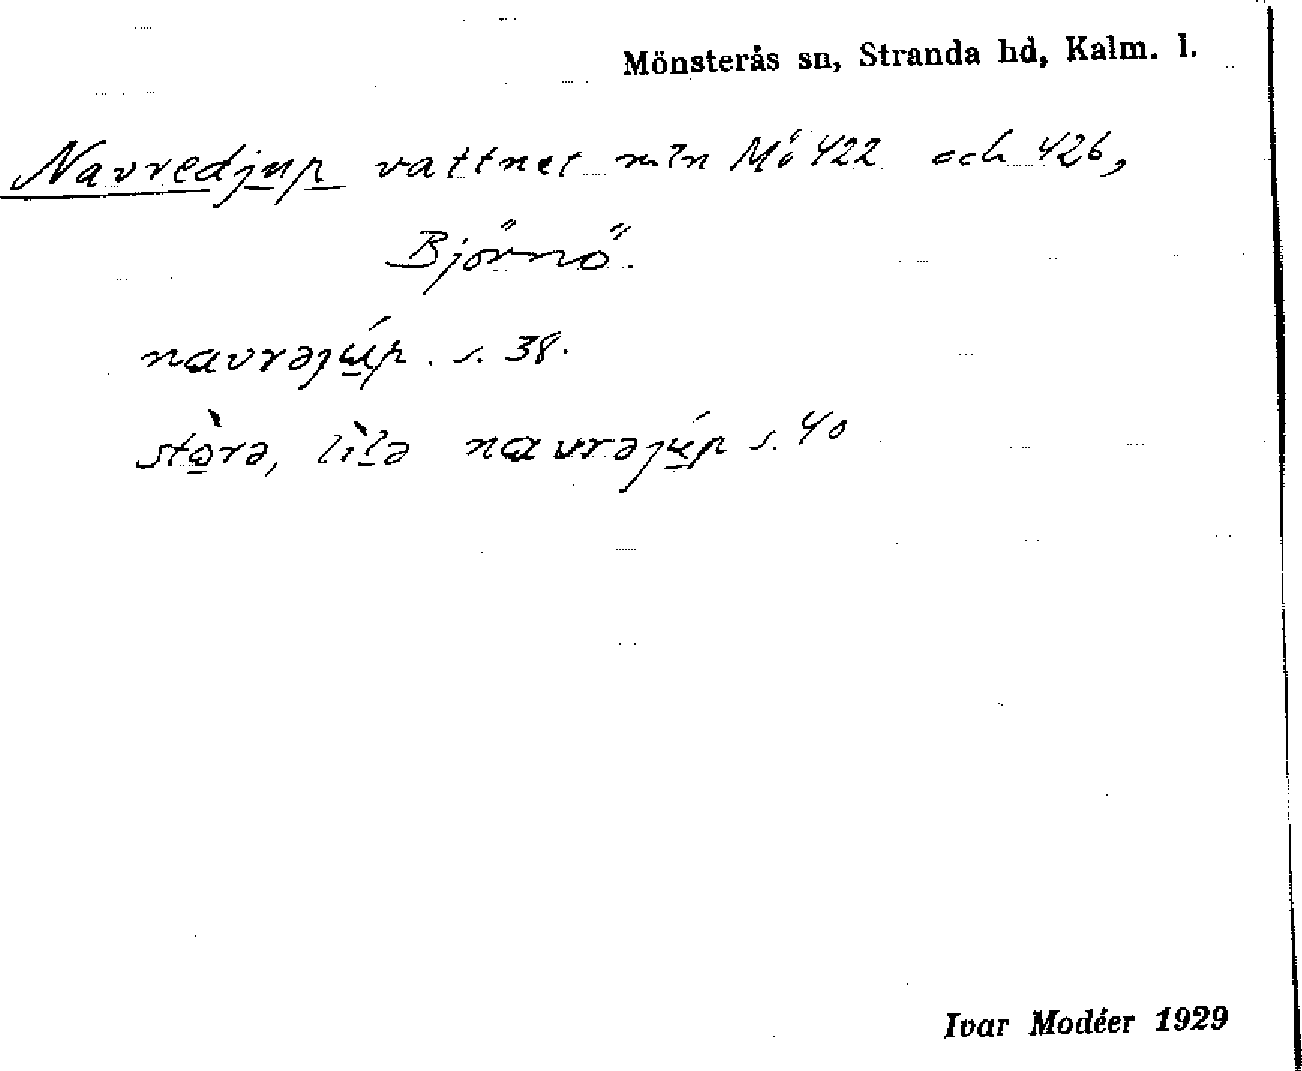 Mönsterås sn, Stranda hd, Kalm. l.
Navredjup vattnet mln Mö 422 och 426,
Björnö.
navrəjúp. s. 38.
stòrə, lìlə navrəjúp s. 40
Ivar Modéer 1929